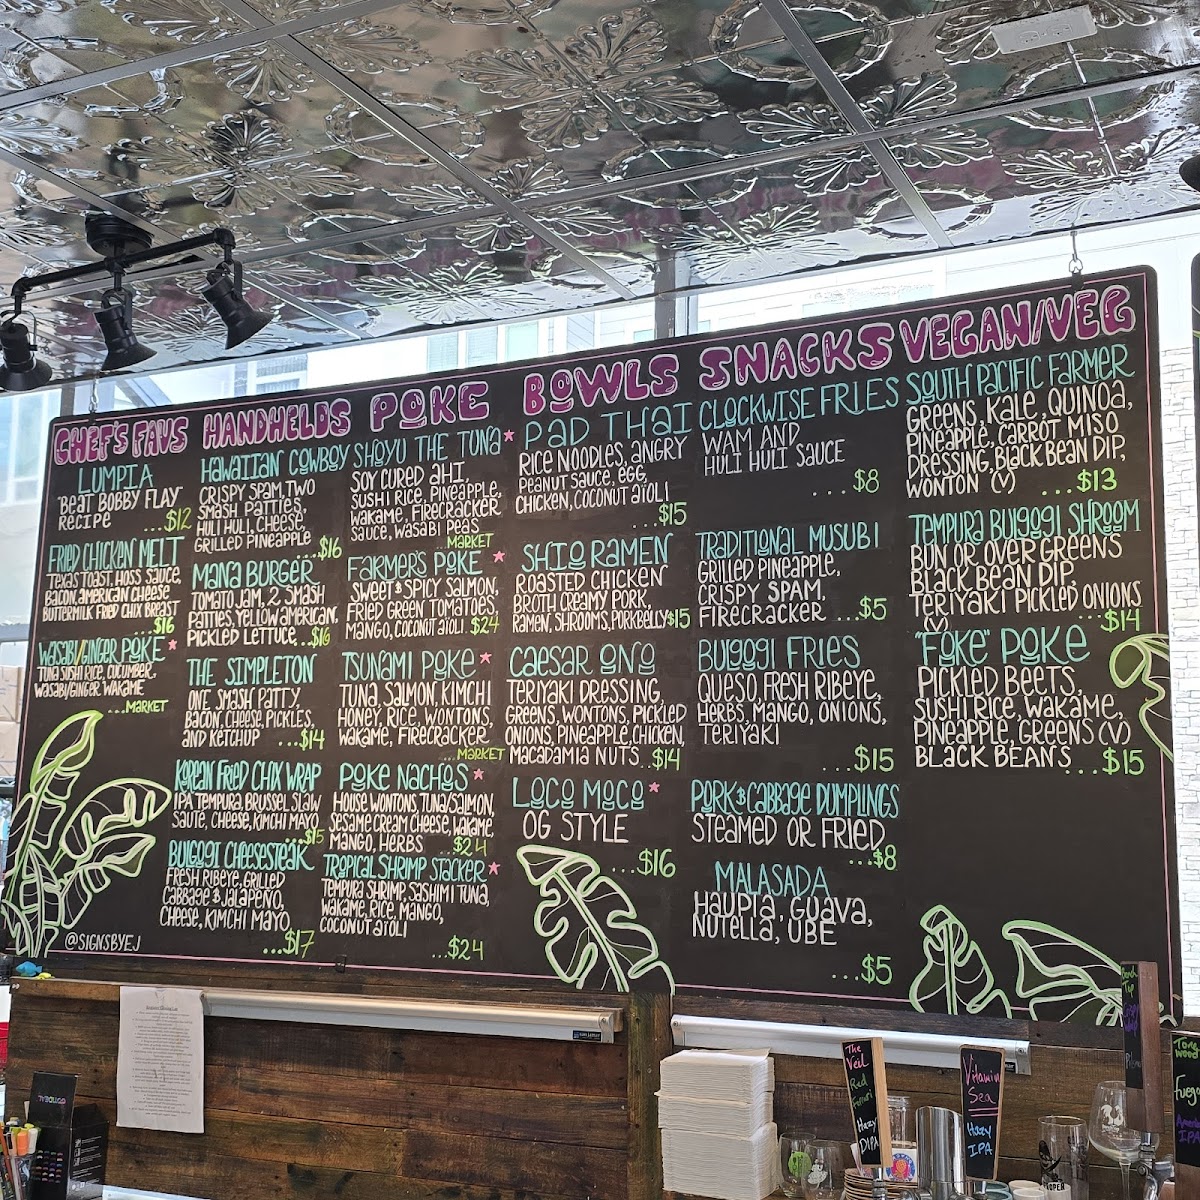 CHEF'S FAVS
LUMPIA
"BEAT BOBBY FLAY"
RECIPE ...$12
FRIED CHICKEN MELT
TEXAS TOAST, HOSS SAUCE,
BACON, AMERICAN CHEESE
BUTTERMILK FRIED CHIX BREAST
...$16
WASABI/GINGER POKE *
TUNA SUSHI RICE, CUCUMBER,
WASABI/GINGER WAKAME
...MARKET
@SIGNSBYEJ
HANDHELDS
HAWAIIAN COWBOY
CRISPY SPAM, TWO
SMASH PATTIES,
HULI HULI, CHEESE,
GRILLED PINEAPPLE
...$16
MANA BURGER
TOMATO JAM, 2 SMASH
PATTIES, YELLOW AMERICAN,
PICKLED LETTUCE...$16
THE SIMPLETON
ONE SMASH PATTY,
BACON, CHEESE, PICKLES,
AND KETCHUP ...$14
KOREAN FRIED CHIX WRAP
IPA TEMPURA, BRUSSEL SLAW
SAUTE, CHEESE, KIMCHI MAYO
...$15
BULGOGI CHEESESTEAK
FRESH RIBEYE, GRILLED
CABBAGE & JALAPEÑO,
CHEESE, KIMCHI MAYO
...$17
POKE
SHOYU THE TUNA *
SOY CURED AHI,
SUSHI RICE, PINEAPPLE,
WAKAME, FIRECRACKER
SAUCE, WASABI PEAS
...MARKET
FARMER'S POKE *
SWEET & SPICY SALMON,
FRIED GREEN TOMATOES,
MANGO, COCONUT AÏOLI . $24
TSUNAMI POKE *
TUNA, SALMON, KIMCHI
HONEY, RICE, WONTONS,
WAKAME, FIRECRACKER
...MARKET
POKE NACHOS *
HOUSE WONTONS, TUNA/SALMON,
SESAME CREAM CHEESE, WAKAME,
MANGO, HERBS ...$24
TROPICAL SHRIMP STACKER *
TEMPURA SHRIMP, SASHIMI TUNA,
WAKAME, RICE, MANGO,
COCONUT AÏOLI
...$24
BOWLS
PAD THAI
RICE NOODLES, ANGRY
PEANUT SAUCE, EGG,
CHICKEN, COCONUT AÏOLI
...$15
SHIO RAMEN
ROASTED CHICKEN
BROTH CREAMY PORK,
RAMEN, SHROOMS, PORKBELLY $15
CAESAR ONO
TERIYAKI DRESSING,
GREENS, WONTONS, PICKLED
ONIONS, PINEAPPLE, CHICKEN,
MACADAMIA NUTS...$14
LOCO MOCO *
OG STYLE
...$16
SNACKS
CLOCKWISE FRIES
WAM AND
HULI HULI SAUCE
...$8
TRADITIONAL MUSUBI
GRILLED PINEAPPLE,
CRISPY SPAM,
FIRECRACKER ...$5
BULGOGI FRIES
QUESO, FRESH RIBEYE,
HERBS, MANGO, ONIONS,
TERIYAKI
...$15
PORK & CABBAGE DUMPLINGS
STEAMED OR FRIED
...$8
MALASADA
HAUPIA, GUAVA,
NUTELLA, UBE
...$5
VEGAN/VEG
SOUTH PACIFIC FARMER
GREENS, KALE, QUINOA,
PINEAPPLE, CARROT MISO
DRESSING, BLACK BEAN DIP,
WONTON (V) ...$13
TEMPURA BULGOGI SHROOM
BUN OR OVER GREENS
BLACK BEAN DIP,
TERIYAKI PICKLED ONIONS
(V) ...$14
"FOKE" POKE
PICKLED BEETS,
SUSHI RICE, WAKAME,
PINEAPPLE, GREENS (V)
BLACK BEANS ...$15
The
Veil
Red
Hazy
DIPA
Vitamin
Sea
Hazy
IPA
Fuego
IPA